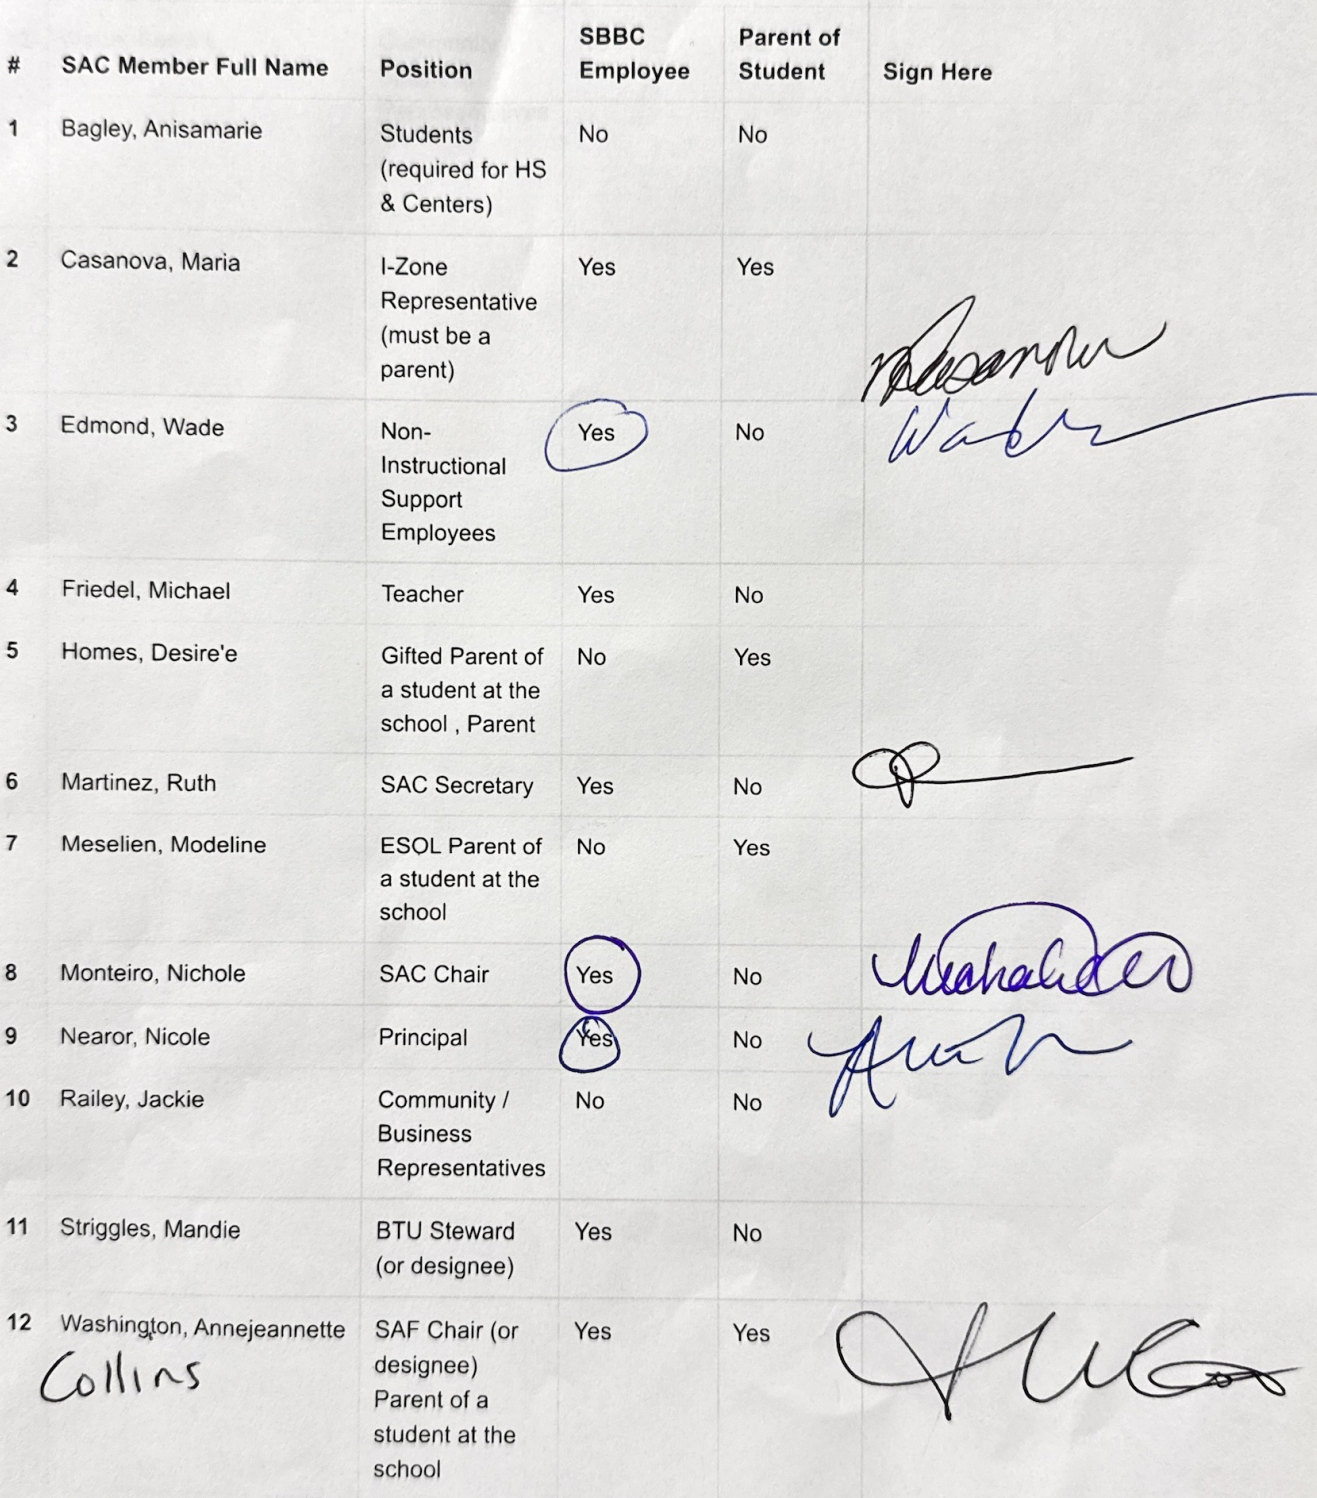 # SAC Member Full Name Position SBBC Employee Parent of Student Sign Here
1 Bagley, Anisamarie Students No No
(required for HS
& Centers)
2 Casanova, Maria I-Zone Yes Yes
Representative
(must be a
parent)
3 Edmond, Wade Non- Yes No
Instructional
Support
Employees
4 Friedel, Michael Teacher Yes No
5 Homes, Desire'e Gifted Parent of No Yes
a student at the
school , Parent
6 Martinez, Ruth SAC Secretary Yes No
7 Meselien, Modeline ESOL Parent of No Yes
a student at the
school
8 Monteiro, Nichole SAC Chair Yes No
9 Nearor, Nicole Principal Yes No
10 Railey, Jackie Community / No No
Business
Representatives
11 Striggles, Mandie BTU Steward Yes No
(or designee)
12 Washington, Annejeannette SAF Chair (or Yes Yes
Collins designee)
Parent of a
student at the
school